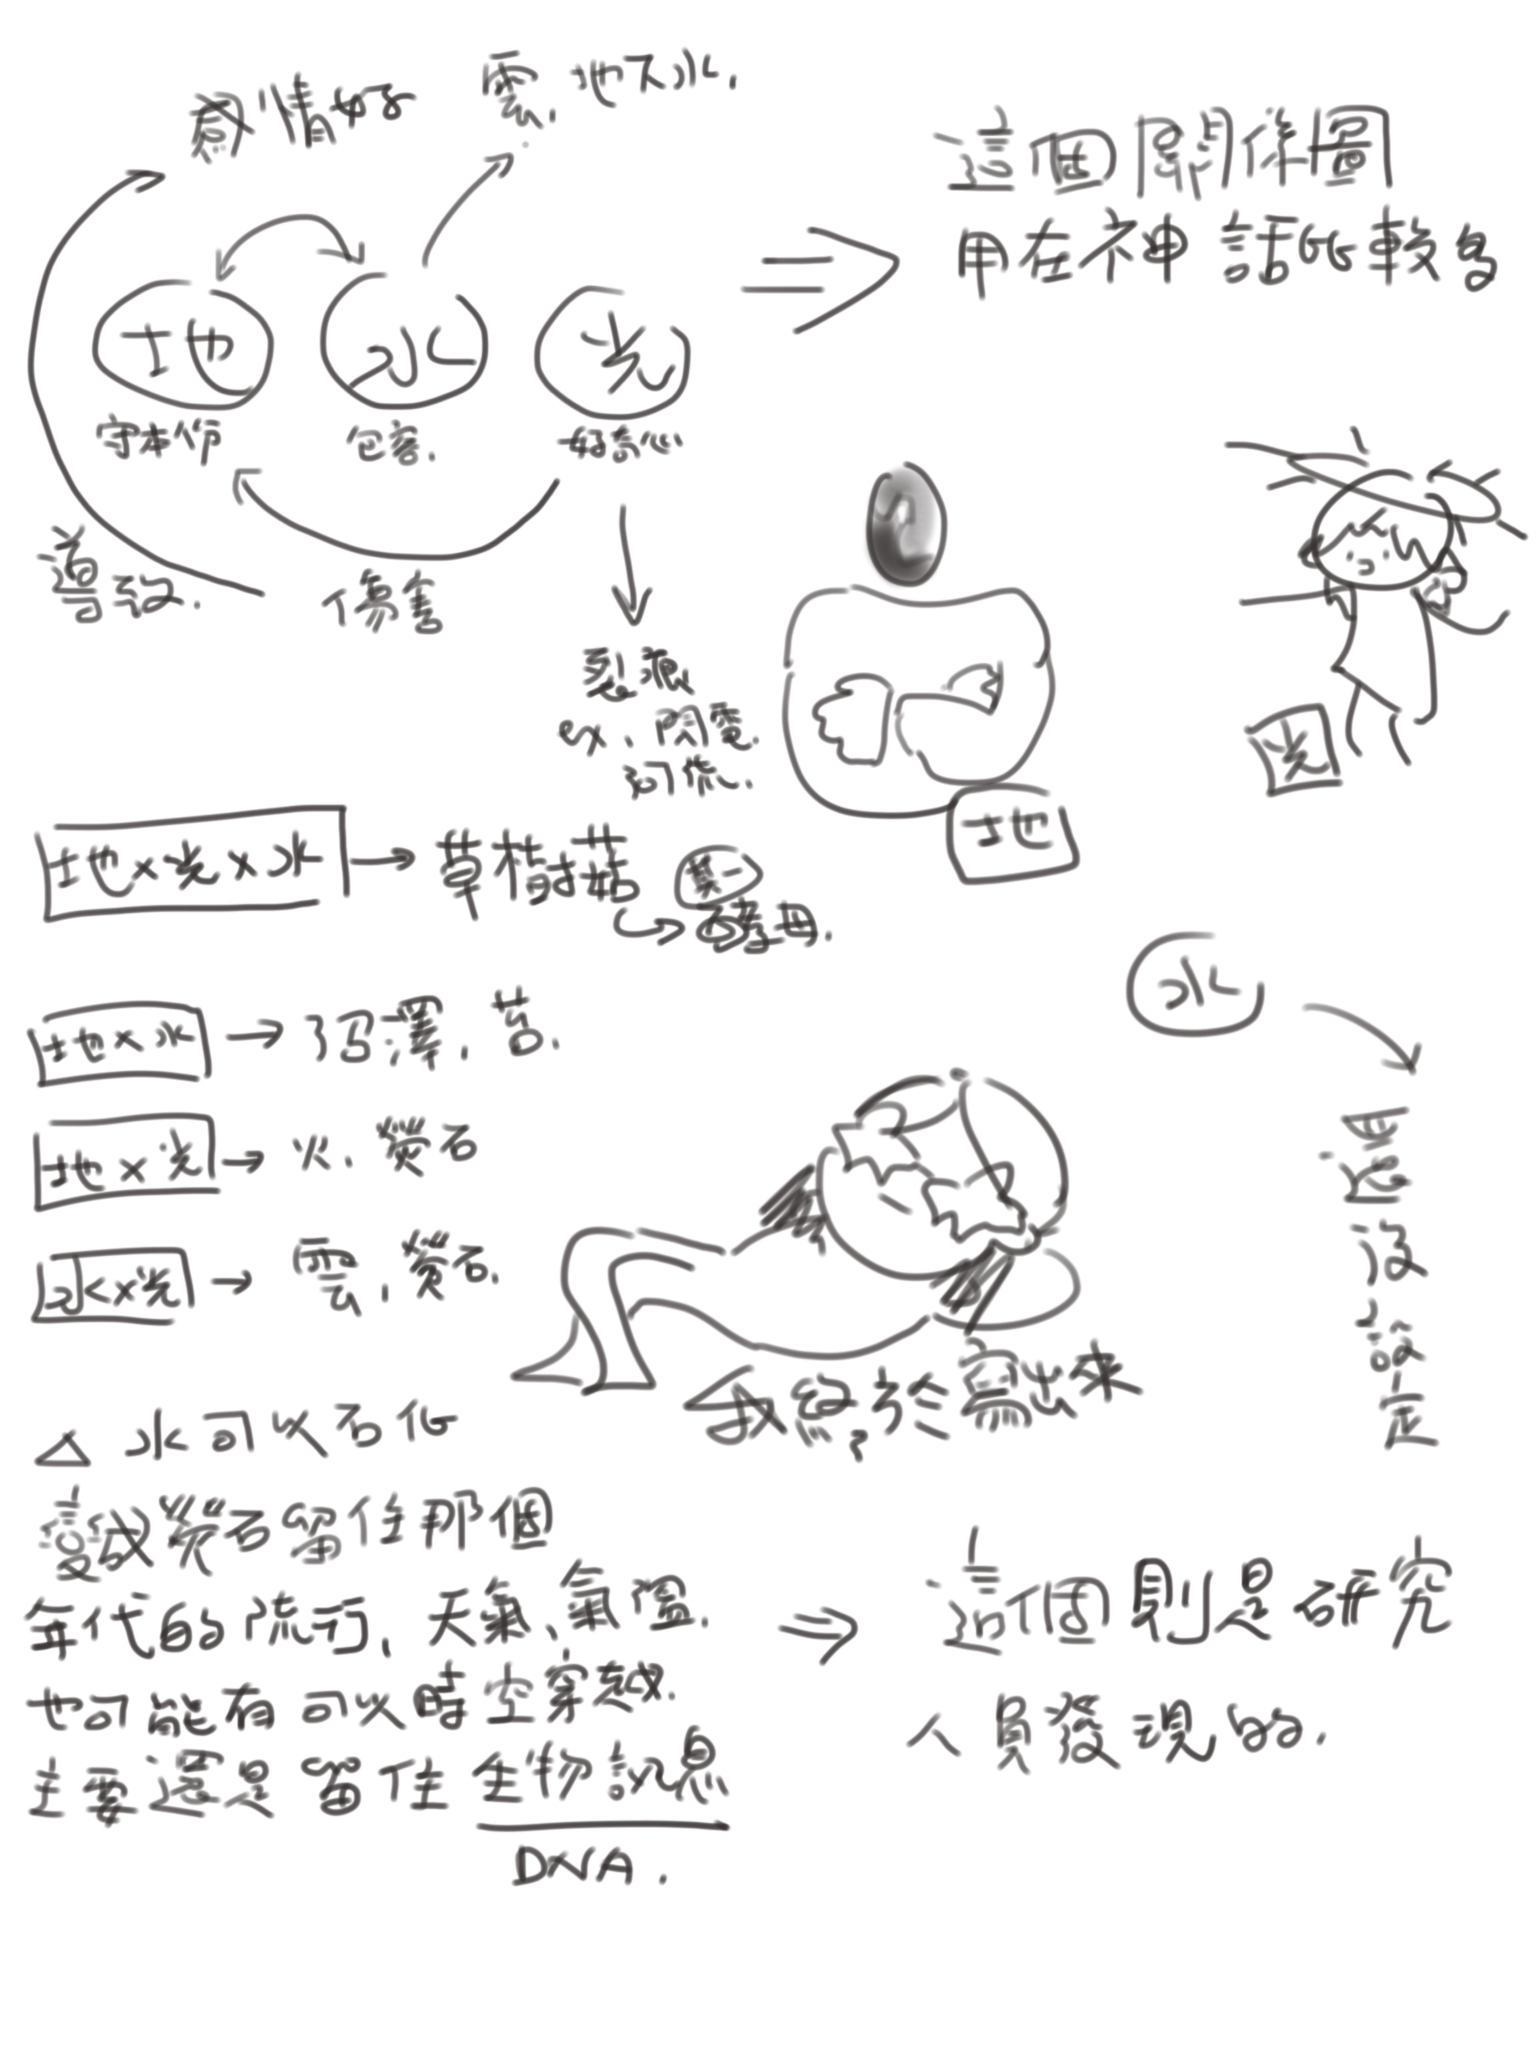 感情好
雲、地下水.
這個關係圖
用在神話比較多
地
水
光
守本份
包容.
好奇心
導致.
傷害
裂痕
ex、閃電.
可能.
光
地
地×光×水
草枝菇
第一
酵母.
水
地×水
沼澤、苔.
還沒設定
地×光
火、螢石
水×光
雲、螢石.
我終於寫出來
△ 水可以石化
變成螢石留住那個
年代的流行、天氣、氣溫.
也可能有可以時空穿越.
主要還是留住生物訊息
DNA.
這個則是研究
人員發現的.